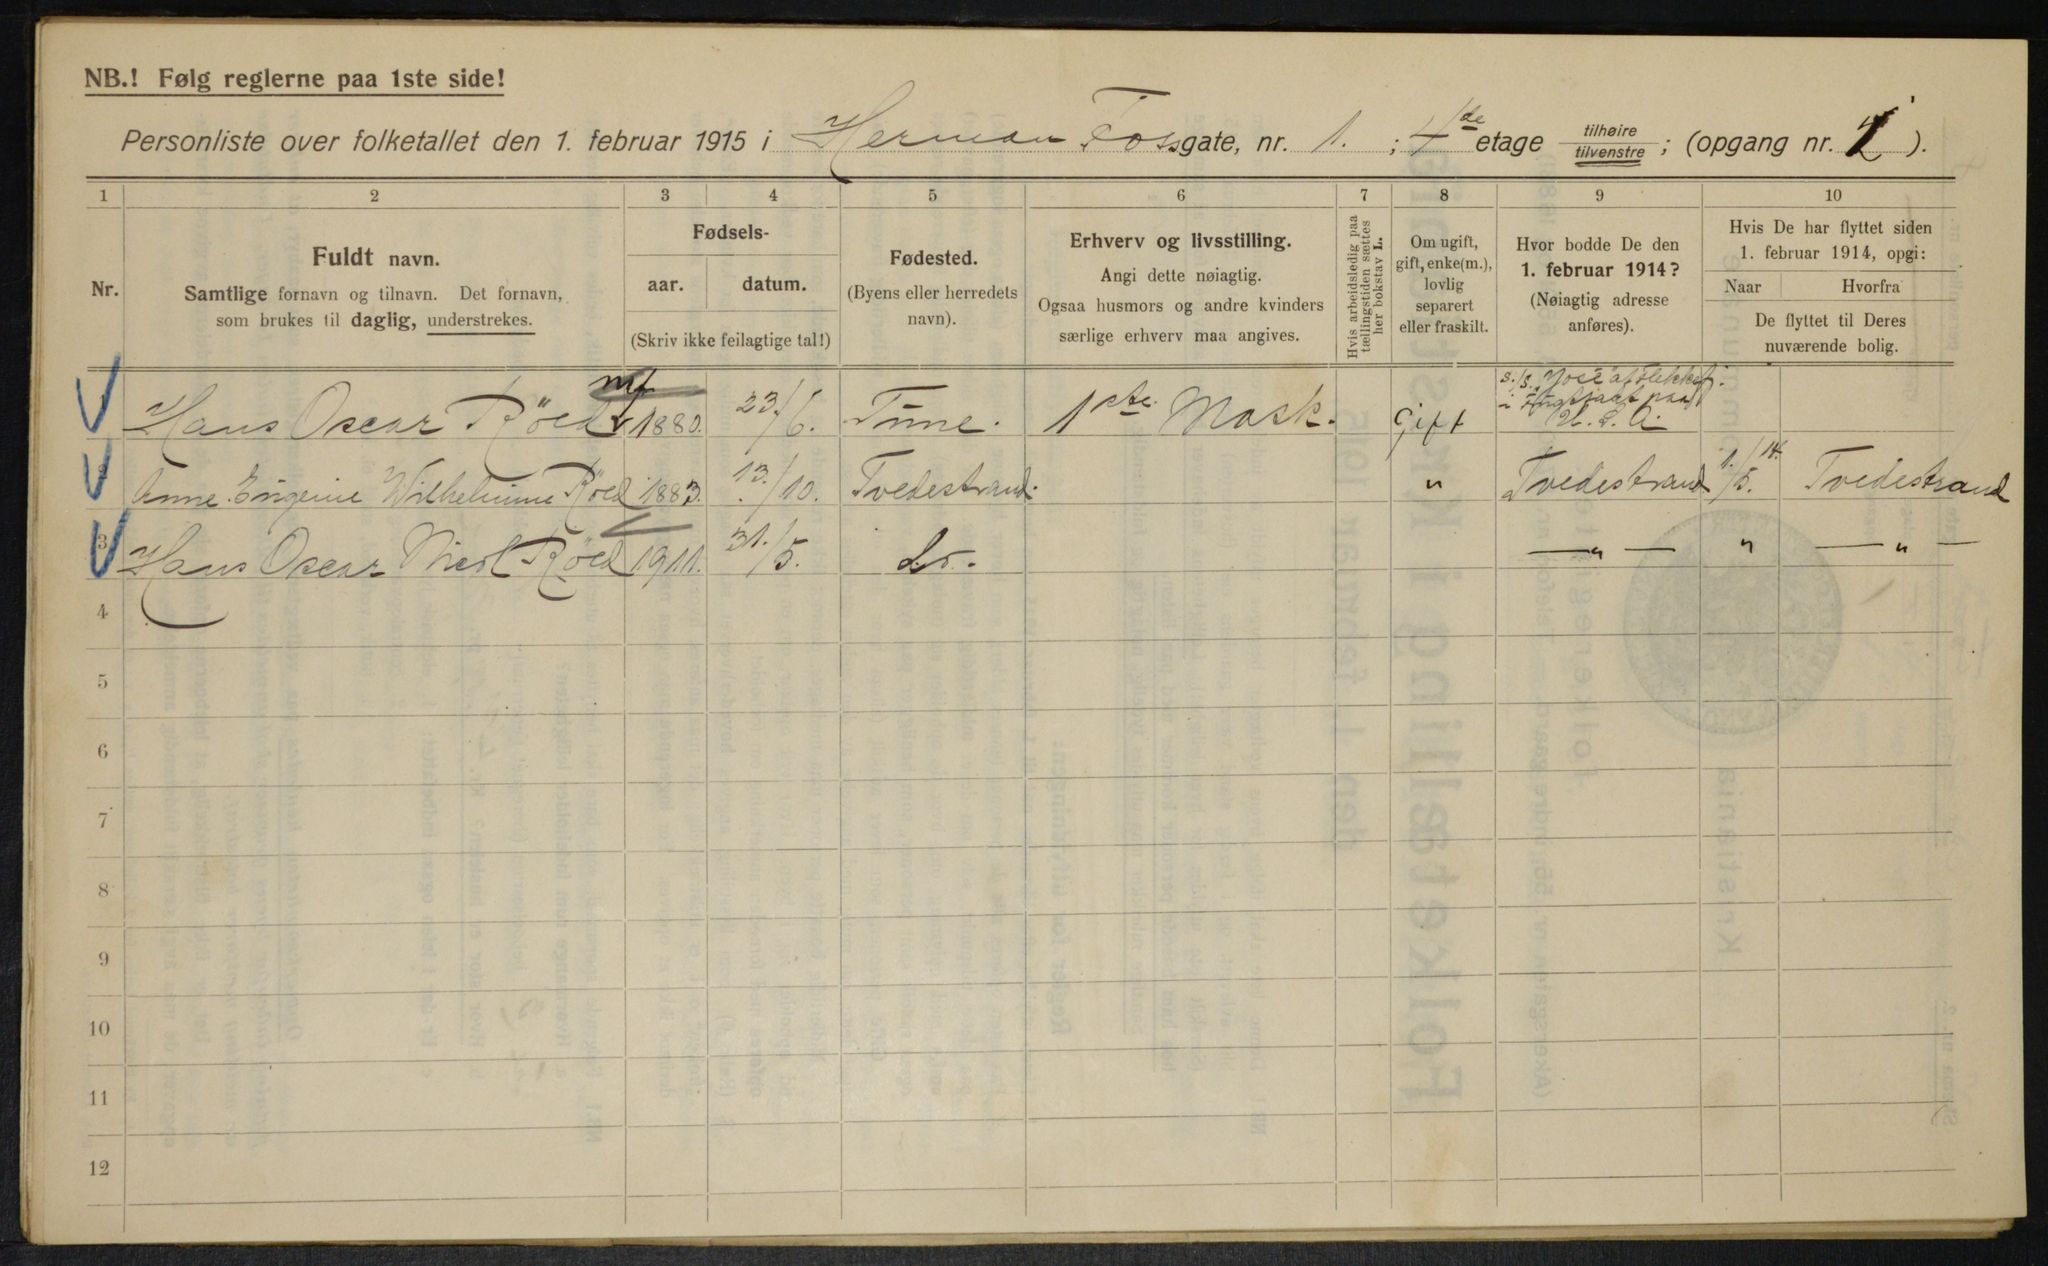 NB.! Følg reglerne paa 1ste side!
Personliste over folketallet den 1. februar 1915 i Herman Foss gate, nr. 1. ; 4de etage tilhøire tilvenstre ; (opgang nr. ).
1 2 3 4 5 6 7 8 9 10
Nr.
Fuldt navn.
Samtlige fornavn og tilnavn. Det fornavn,
som brukes til daglig, understrekes.
Fødsels-
aar. datum.
(Skriv ikke feilagtige tal!)
Fødested.
(Byens eller herredets
navn).
Erhverv og livsstilling.
Angi dette nøiagtig.
Ogsaa husmors og andre kvinders
særlige erhverv maa angives.
Hvis arbeidsledig paa
tællingstiden sættes
her bokstav L.
Om ugift,
gift, enke(m.),
lovlig
separert
eller fraskilt.
Hvor bodde De den
1. februar 1914?
(Nøiagtig adresse
anføres).
Hvis De har flyttet siden
1. februar 1914, opgi:
Naar Hvorfra
De flyttet til Deres
nuværende bolig.
Hans Oscar Röed 1880. 23./6. Tune. 1ste Mask. Gift s./s. i paa U. S. A
2 Anne Eugenie Wilhelmine Röed 1883. 13./10. Tvedestrand. " Tvedestrand 1./5. 14. Tvedestrand
3 Hans Oscar Röed 1911. 31./5. do. — " — " — " —
4
5
6
7
8
9
10
11
12